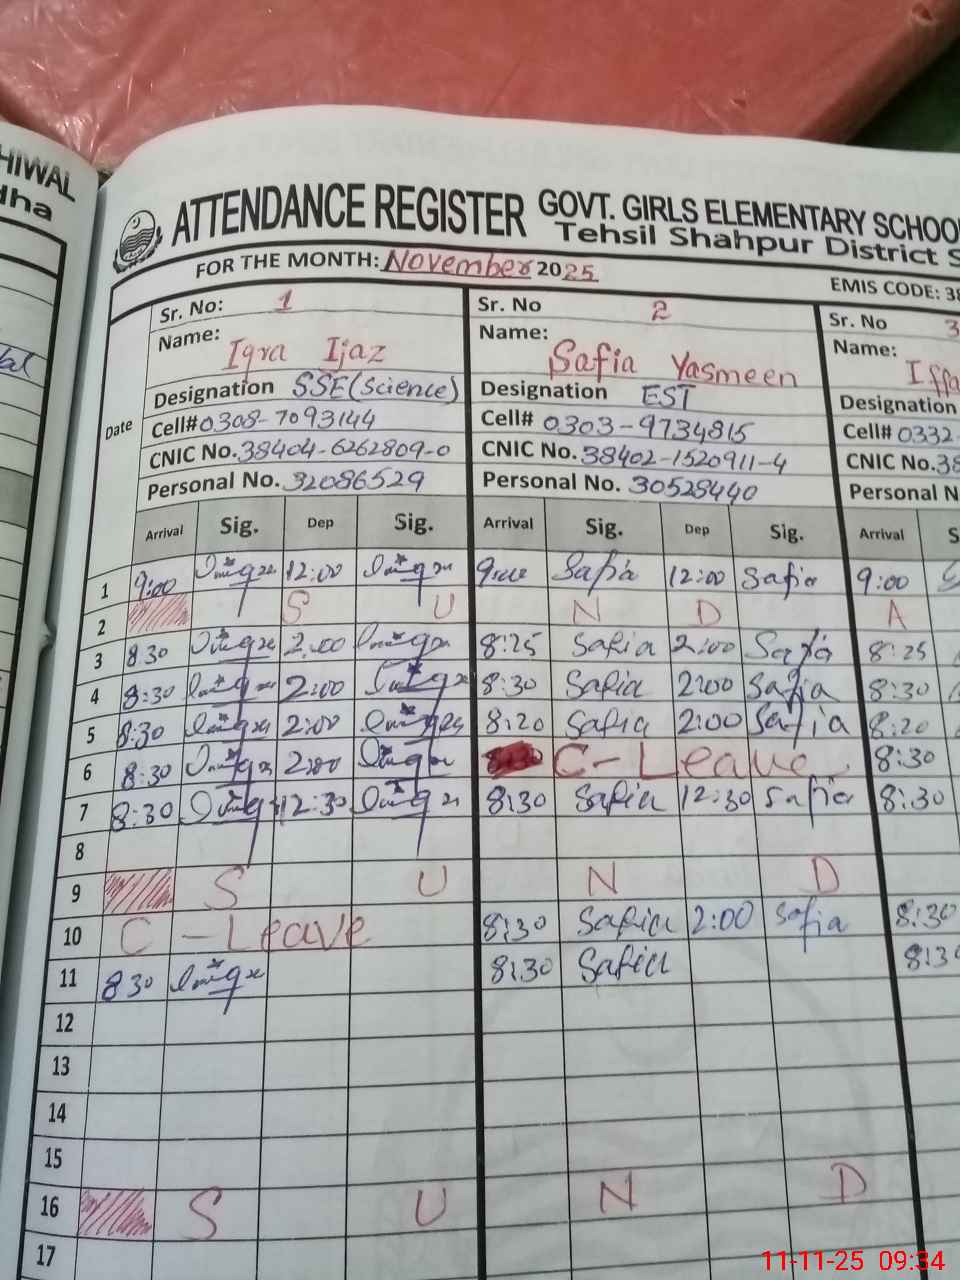 HIWAL
dha
ATTENDANCE REGISTER GOVT. GIRLS ELEMENTARY SCHOO
Tehsil Shahpur District S
FOR THE MONTH: November 2025
EMIS CODE: 38
Sr. No: 1 Sr. No 2 Sr. No 3
Name: Iqra Ijaz Name: Safia Yasmeen Name: Iffa
Designation SSE(Science) Designation EST Designation
Date
Cell# 0308-7093144 Cell# 0303-9734815 Cell# 0332-
CNIC No. 38404-6262809-0 CNIC No. 38402-1520911-4 CNIC No. 38
Personal No. 32086529 Personal No. 30528440 Personal N
Arrival Sig. Dep Sig. Arrival Sig. Dep Sig. Arrival S
1 9:00 12:00 Safia 12:00 Safia 9:00
2 S U N D A
3 8 30 2:00 8:25 Safia 2:00 Safia 8:25
4 8:30 2:00 8:30 Safia 2:00 Safia 8:30
5 8:30 2:00 8:20 Safia 2:00 Safia 8:20
6 8:30 2:00 C-Leave 8:30
7 8:30 12:30 8:30 Safia 12:30 Safia 8:30
8
9 S U N D
10 C-Leave 8:30 Safia 2:00 Safia 8:30
11 8 30 8:30 Safia 8:30
12
13
14
15
16 S U N D
17
11-11-25 09:34